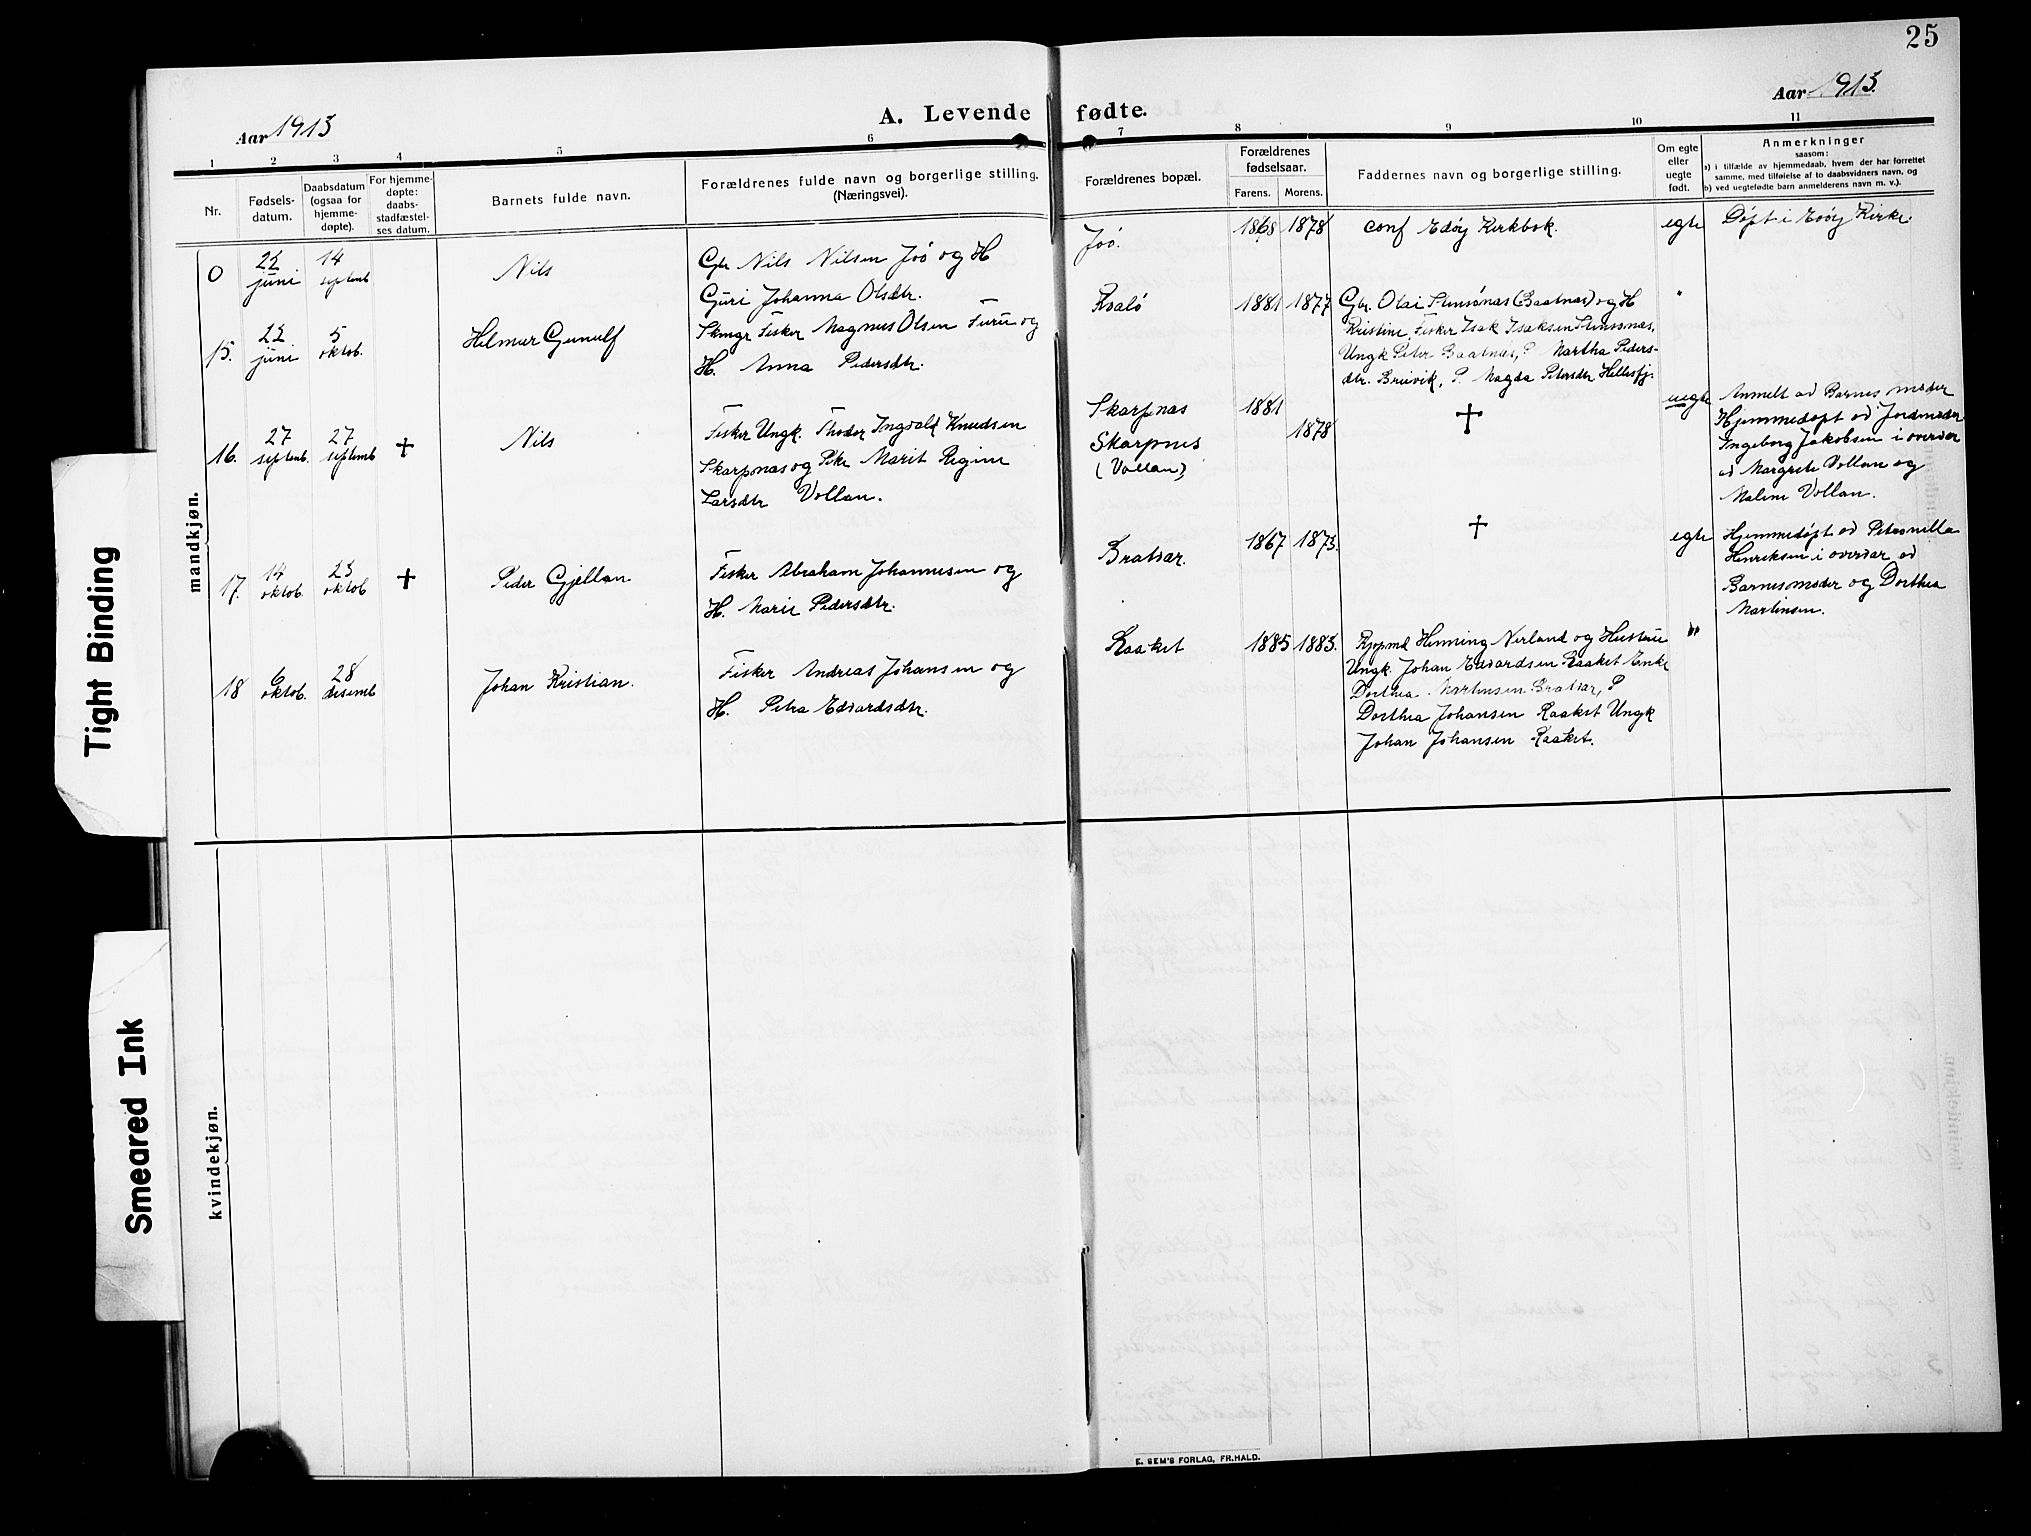 25
Aar 1913
A. Levende fødte.
Aar 1913.
1 2 3 4 5 6 7 8 9 10 11
Nr.
Fødsels-
datum.
Daabsdatum
(ogsaa for
hjemme-
døpte).
For hjemme-
døpte:
daabs-
stadfæstel-
ses datum.
Barnets fulde navn.
Forældrenes fulde navn og borgerlige stilling.
(Næringsvei).
Forældrenes bopæl.
Forældrenes
fødselsaar.
Farens. Morens.
Faddernes navn og borgerlige stilling.
Om egte
eller
uegte
født.
Anmerkninger
saasom:
a) i tilfælde av hjemmedaab, hvem der har forrettet
samme, med tilføielse af to daabsvidners navn, og
b) ved uegtefødte barn anmelderens navn m. v.).
mandkjøn.
0
22
juni
14
septemb
Nils
Gbr Nils Nilsen Joö og H
Guri Johanna Olsdtr.
Joö.
1868 1878
conf Edöy Kirkbok.
egte
Døpt i Edöy Kirke.
15.
22
juni
5
oktob.
Helmer Gunulf
Skmgr Fisker Magnus Olsen Furu og
H. Anna Pedersdtr.
1881 1877
Gbr. Olai Stensönas (Baatnas) og H
Kristine, Fisker Isak Isaksen
Ungk Peter Baatnas, P Martha Peders-
dtr. Breivik, P. Magda Petersdtr Hellesfj.
"
16.
27
septemb.
27
septemb
+
Nils
Fisker Ungk. Thodor Ingvald Knudsen
Skarpnas og Pike Marit Regine
Larsdtr Vollan.
Skarpnas
Skarpnes
(Vollan)
1881
1878
+
uegte
Anmelt ad Barnes moder
Hjemmedøpt ad Jordmoder
Ingeborg Jakobsen i overvær
ad Margrete Vollan og
Malene Vollan.
17.
14
oktob.
23
oktob
+
Peder Gjellan
Fisker Abraham Johannesen og
H. Marie Pedersdtr.
Bratvar.
1867 1873.
+
egte
Hjemmedøpt ad Petronella
Henriksen i overvær ad
Barnes moder og Dorthea
Martinsen.
18
6
oktob.
28
desemb
Johan Kristian.
Fisker Andreas Johansen og
H. Petra Edvardsdtr.
Raaket
1885 1883.
Kjøpmd Henning Nerland og Hustrue
Ungk. Johan Edvardsen Raaket Enke
Dorthea Martinsen Bratvar, P
Dorthea Johansen Raaket Ungk
Johan Johansen Raaket.
"
kvindekjøn.
E. SEM'S FORLAG, FR.HALD.
Tight Binding
Smeared Ink